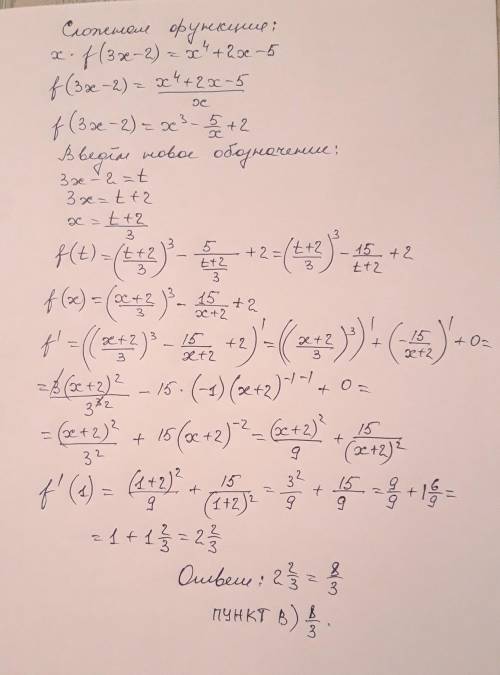 Сложная функция:
x · f(3x-2) = x⁴+2x-5
f(3x-2) = (x⁴+2x-5)/x
f(3x-2) = x³ - 5/x + 2
Введём новое обозначение:
3x-2 = t
3x = t+2
x = (t+2)/3
f(t) = ((t+2)/3)³ - 5/((t+2)/3) + 2 = ((t+2)/3)³ - 15/(t+2) + 2
f(x) = ((x+2)/3)³ - 15/(x+2) + 2
f' = (((x+2)/3)³ - 15/(x+2) + 2)' = (((x+2)/3)³)' + (-15/(x+2))' + 0 =
= 3(x+2)²/3³² - 15·(-1)(x+2)⁻¹⁻¹ + 0 =
= (x+2)²/3² + 15(x+2)⁻² = (x+2)²/9 + 15/(x+2)²
f'(1) = (1+2)²/9 + 15/(1+2)² = 3²/9 + 15/9 = 9/9 + 1 6/9 =
= 1 + 1 2/3 = 2 2/3
Ответ: 2 2/3 = 8/3
ПУНКТ В) 8/3.